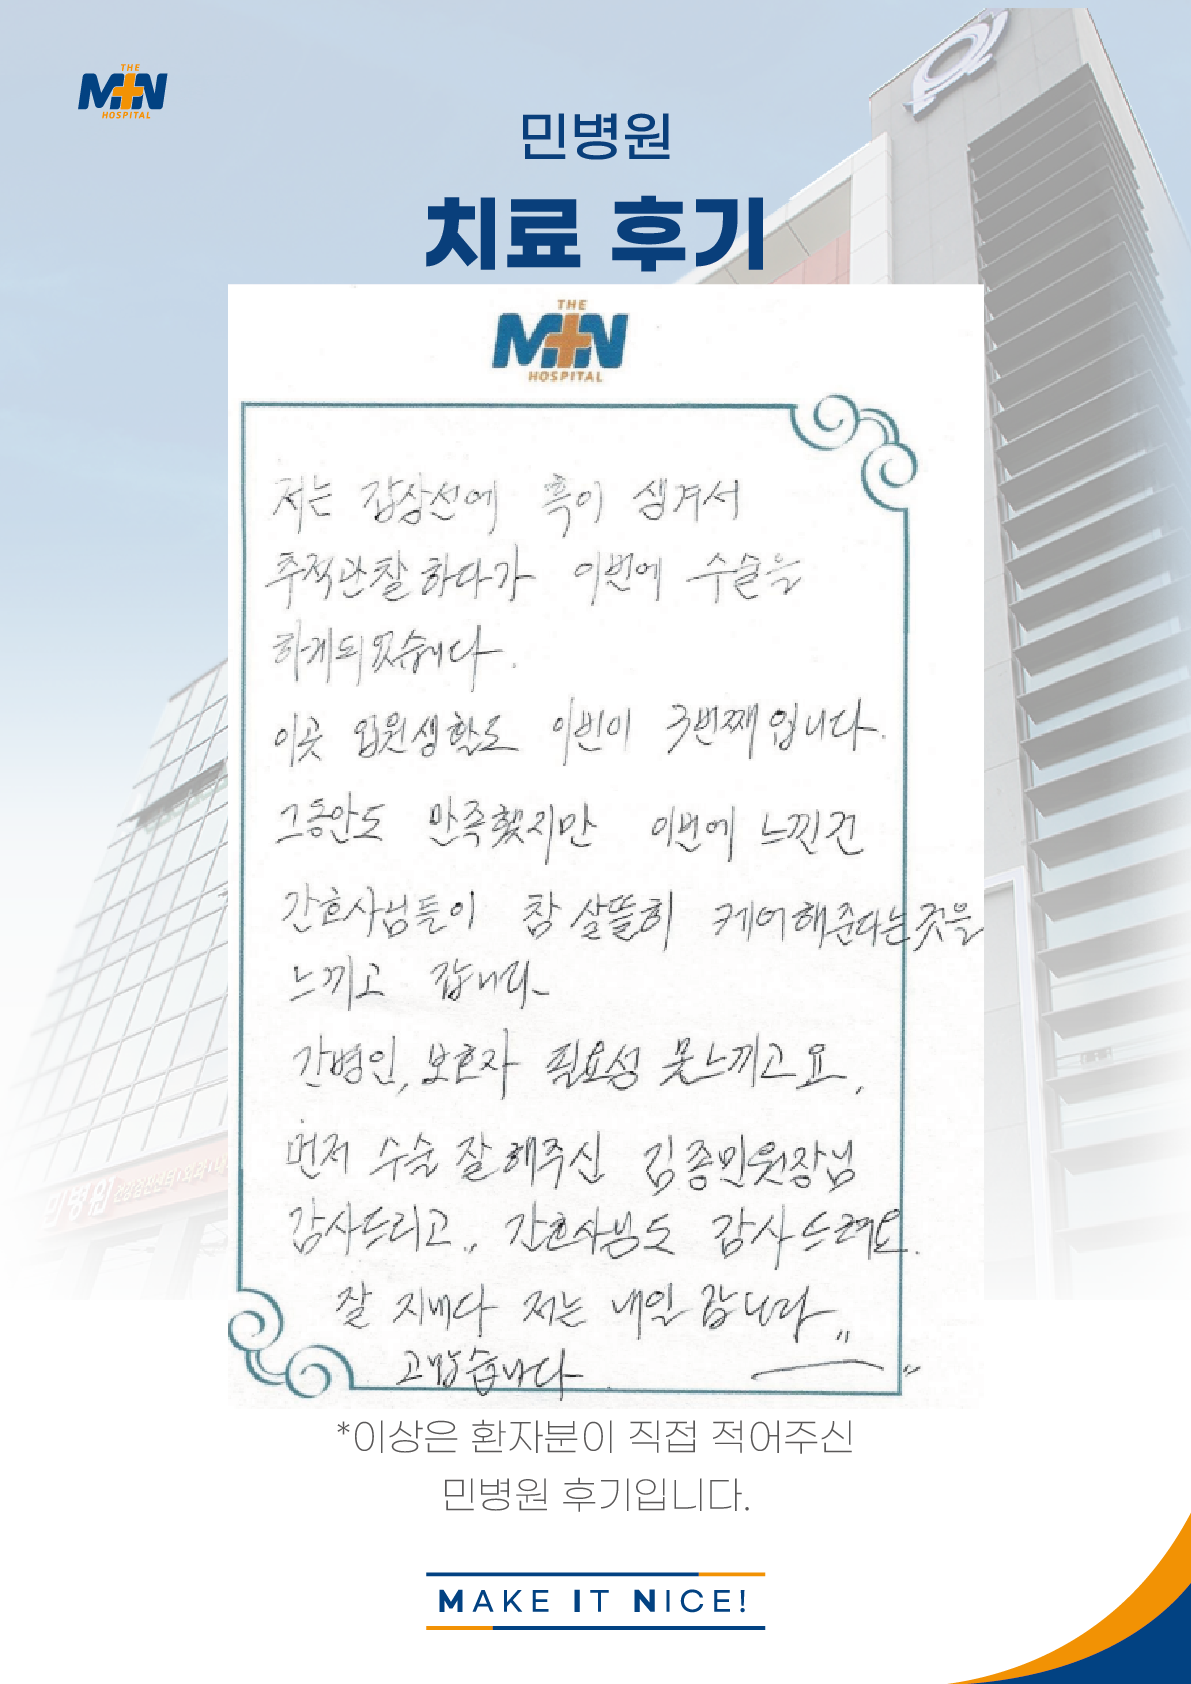 THE
MIN
HOSPITAL
민병원
치료 후기
THE
MIN
HOSPITAL
저는 갑상선에 혹이 생겨서
추적관찰하다가 이번에 수술을
하게되었습니다.
이곳 입원생활도 이번이 3번째입니다.
그동안도 만족했지만 이번에 느낀건
간호사님들이 참 살뜰히 케어해준다는것을
느끼고 갑니다
간병인, 보호자 필요성 못느끼고요,
먼저 수술 잘해주신 김종민원장님
감사드리고,, 간호사님도 감사드려요.
잘 지내다 저는 내일 갑니다,,
고맙습니다
민병원
*이상은 환자분이 직접 적어주신
민병원 후기입니다.
MAKE IT NICE!